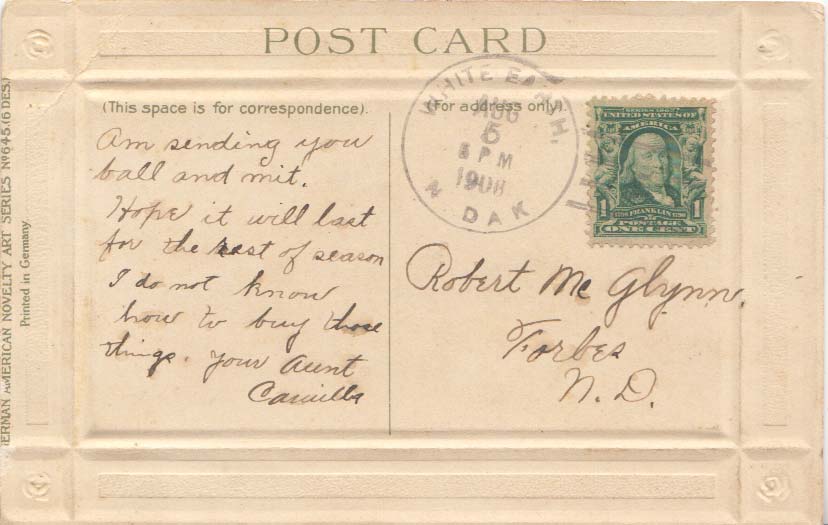 POST CARD
(This space is for correspondence).
Am sending you
ball and mit.
Hope it will last
for the rest of season
I do not know
how to buy those
things. Your Aunt
Camilla
(For address only).
WHITE EARTH,
AUG
5
PM
1908
N DAK
SERIES 1902
UNITED STATES OF
AMERICA
1 FRANKLIN 1
1706 1790
POSTAGE
ONE CENT
Robert Mc Glynn.
Forbes
N. D.
GERMAN AMERICAN NOVELTY ART SERIES No 645. (6 DES.)
Printed in Germany